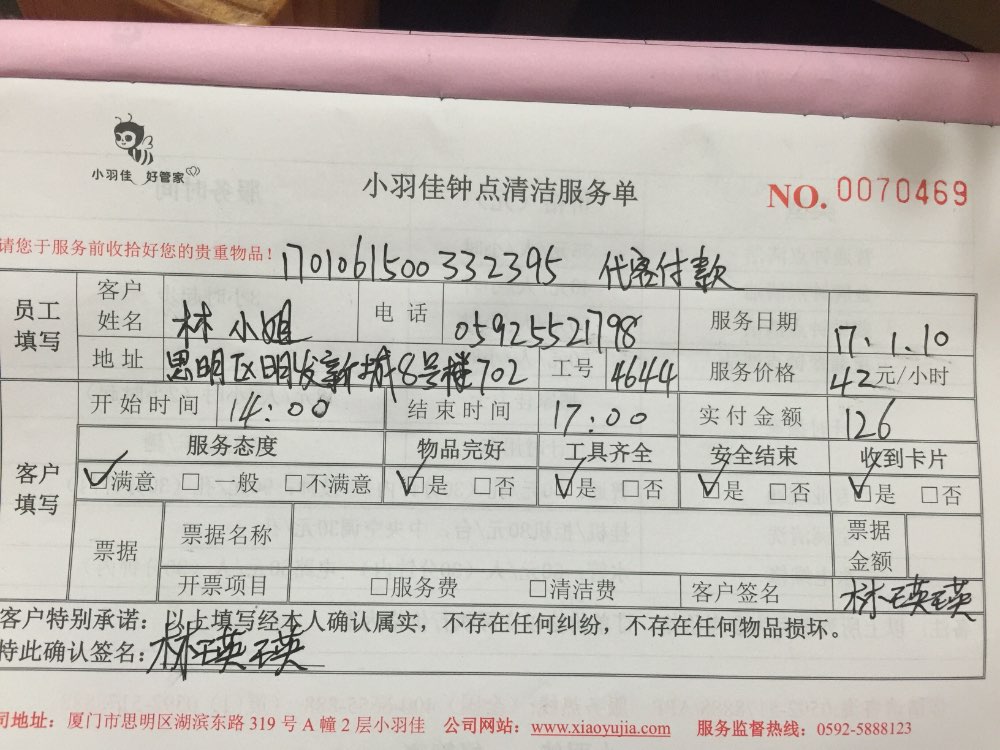 小羽佳 好管家
小羽佳钟点清洁服务单
NO. 0070469
请您于服务前收拾好您的贵重物品！ 1701061500332395 代客付款
员工填写 客户姓名 林小姐 电话 05925521798 服务日期 17.1.10
地址 思明区明发新城8号楼702 工号 4644 服务价格 42元/小时
客户填写 开始时间 14:00 结束时间 17:00 实付金额 126
服务态度 物品完好 工具齐全 安全结束 收到卡片
☑满意 □一般 □不满意 ☑是 □否 ☑是 □否 ☑是 □否 ☑是 □否
票据 票据名称 票据金额
开票项目 □服务费 □清洁费 客户签名 林瑛瑛
客户特别承诺：以上填写经本人确认属实，不存在任何纠纷，不存在任何物品损坏。
特此确认签名：林瑛瑛
司地址：厦门市思明区湖滨东路 319 号 A 幢 2 层小羽佳 公司网站：www.xiaoyujia.com 服务监督热线：0592-5888123